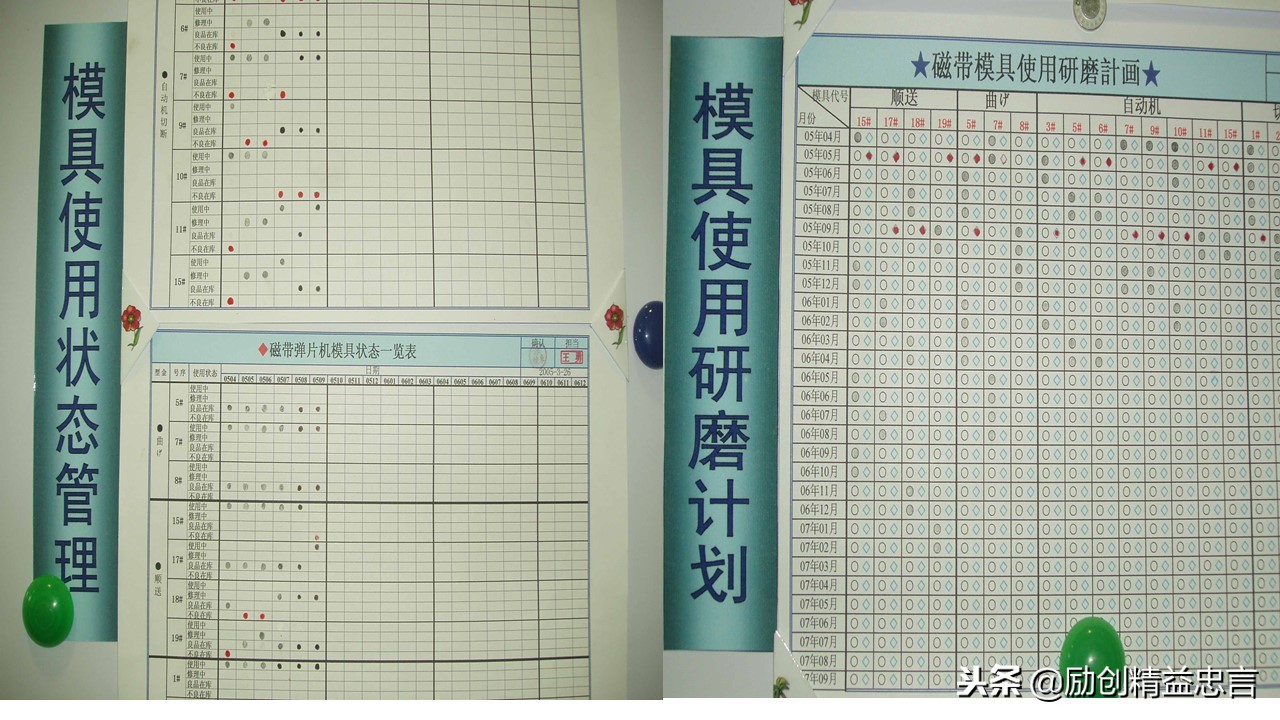 模具使用状态管理
自动机切断
6#
使用中
修理中
良品在库
不良在库
7#
使用中
修理中
良品在库
不良在库
9#
使用中
修理中
良品在库
不良在库
10#
使用中
修理中
良品在库
不良在库
11#
使用中
修理中
良品在库
不良在库
15#
使用中
修理中
良品在库
不良在库
◆磁带弹片机模具状态一览表
确认 担当
王勇
2005-3-26
型金 号序 使用状态 日期
0504 0505 0506 0507 0508 0509 0510 0511 0512 0601 0602 0603 0604 0605 0606 0607 0608 0609 0610 0611 0612
●曲げ
5#
使用中
修理中
良品在库
不良在库
7#
使用中
修理中
良品在库
不良在库
8#
使用中
修理中
良品在库
不良在库
●顺送
15#
使用中
修理中
良品在库
不良在库
17#
使用中
修理中
良品在库
不良在库
18#
使用中
修理中
良品在库
不良在库
19#
使用中
修理中
良品在库
不良在库
1#
使用中
修理中
良品在库
不良在库
模具使用研磨计划
★磁带模具使用研磨計画★
模具代号 顺送 曲げ 自动机
月份 15# 17# 18# 19# 5# 7# 8# 3# 5# 6# 7# 9# 10# 11# 15# 1#
05年04月
05年05月
05年06月
05年07月
05年08月
05年09月
05年10月
05年11月
05年12月
06年01月
06年02月
06年03月
06年04月
06年05月
06年06月
06年07月
06年08月
06年09月
06年10月
06年11月
06年12月
07年01月
07年02月
07年03月
07年04月
07年05月
07年06月
07年07月
07年08月
07年09月
头条 @励创精益忠言